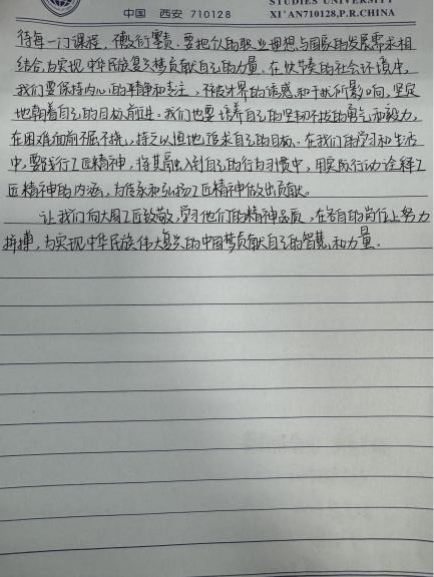 STUDIES UNIVERSITY
中国 西安 710128
XI'AN710128,P.R.CHINA
待每一门课程,
要把个人的职业理想与国家的发展需求相
结合,为实现中华民族复兴梦贡献自己的力量。在快节奏的社会环境中,
我们要保持内心的精神和专注,不被外界的诱惑和干扰所影响,坚定
地朝着自己的目标前进。我们也要培养自己的坚韧不拔的勇气和毅力,
在困难面前不屈不挠,持之以恒地追求自己的目标。在我们的学习和生活
中,要践行工匠精神,将其融入到自己的行为习惯中,用实际行动诠释工
匠精神的内涵,为传承和弘扬工匠精神做出贡献。
让我们向大国工匠致敬,学习他们的精神品质,在各自的岗位上努力
拼搏,为实现中华民族伟大复兴的中国梦贡献自己的智慧和力量.